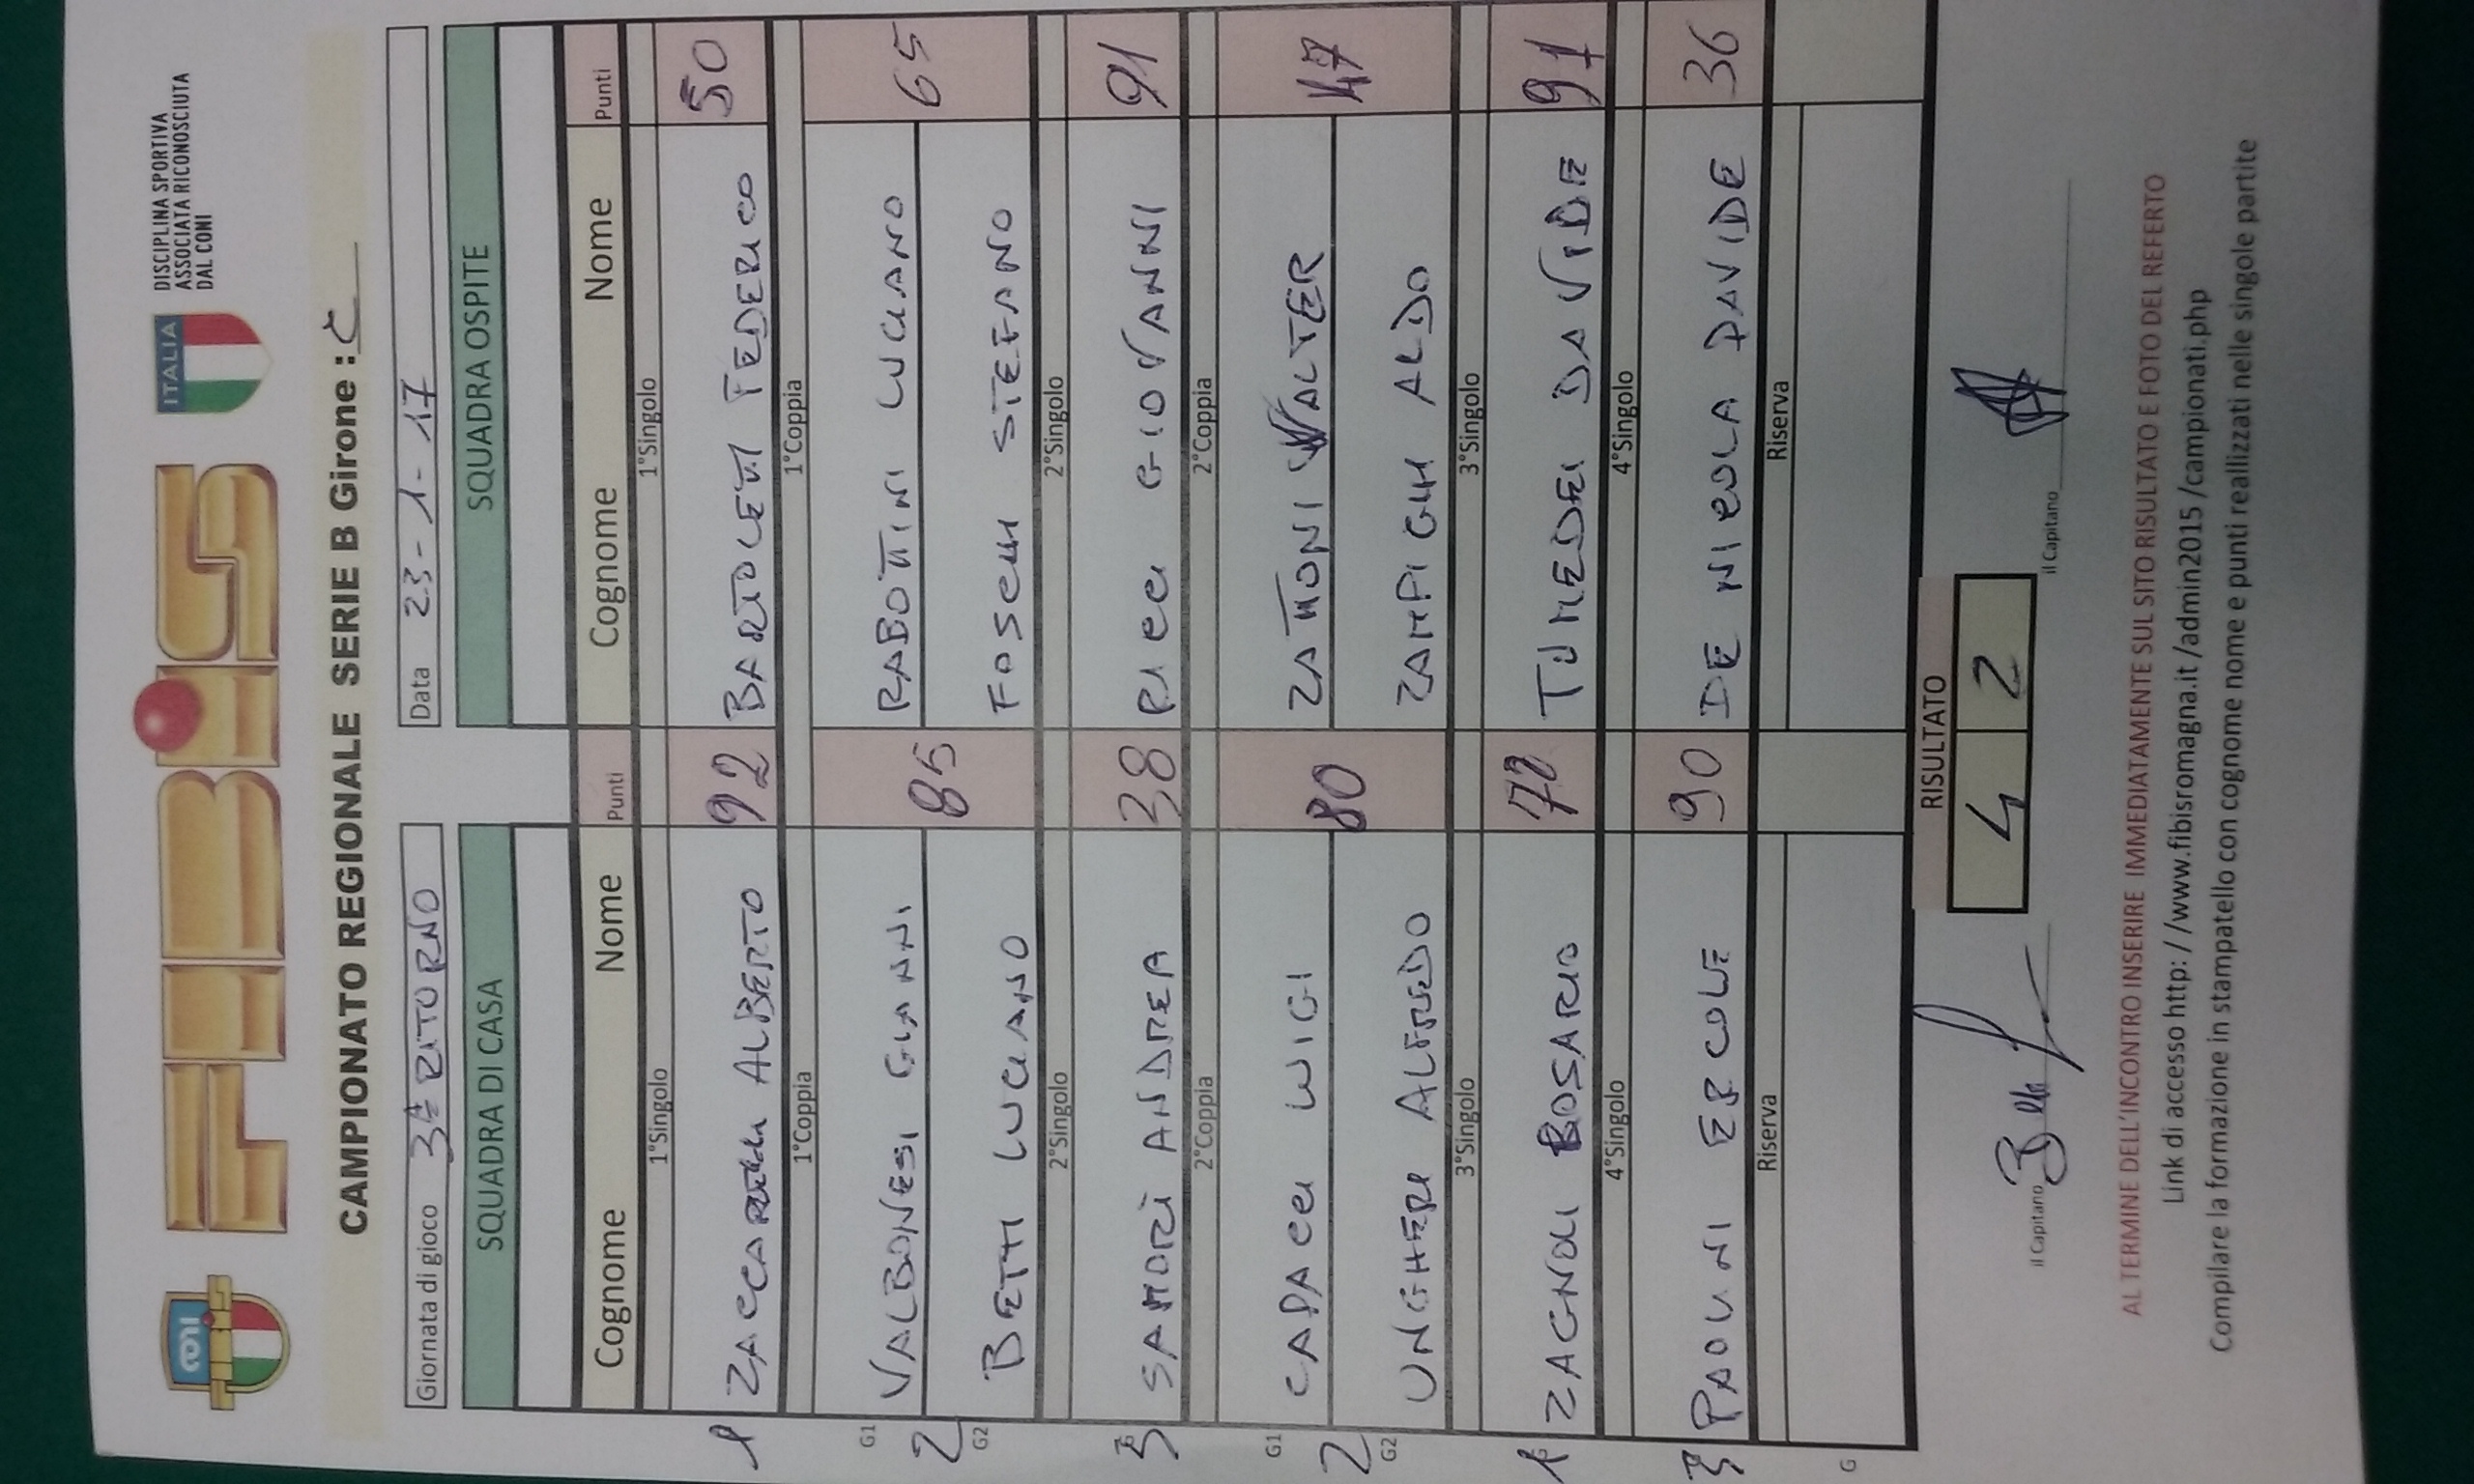 FIBiS
CONI
FIBiS
ITALIA
DISCIPLINA SPORTIVA
ASSOCIATA RICONOSCIUTA
DAL CONI
CAMPIONATO REGIONALE SERIE B Girone : C
Giornata di gioco 3ª RITORNO Data 23-1-17
SQUADRA DI CASA SQUADRA OSPITE
Cognome Nome Punti Cognome Nome Punti
1°Singolo 1°Singolo
1 ZACCARELLI ALBERTO 92 BARTOLETTI FEDERICO 50
1°Coppia 1°Coppia
G1 VALBONESI GIANNI RABOTTINI LUCIANO
2 85 65
G2 BETTI LUCIANO FOSCHI STEFANO
2°Singolo 2°Singolo
3 SAMORÌ ANDREA 38 RICCI GIOVANNI 91
2°Coppia 2°Coppia
G1 CAPACCI LUIGI ZATTONI WALTER
2 80 47
G2 UNGHERI ALFREDO ZAMPIGHI ALDO
3°Singolo 3°Singolo
1 ZAGNOLI ROSARIO 78 TUMEDEI DAVIDE 91
4°Singolo 4°Singolo
3 PAOLINI ERCOLE 90 DE NICOLA DAVIDE 36
Riserva Riserva
G
RISULTATO
4 2
il Capitano il Capitano
AL TERMINE DELL'INCONTRO INSERIRE IMMEDIATAMENTE SUL SITO RISULTATO E FOTO DEL REFERTO
Link di accesso http: / /www.fibisromagna.it /admin2015 /campionati.php
Compilare la formazione in stampatello con cognome nome e punti realizzati nelle singole partite